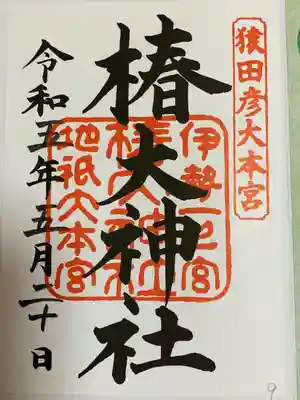 猿田彦大本宮
椿大神社
伊勢一之宮
椿大神社
地祇大本宮
令和五年五月二十日